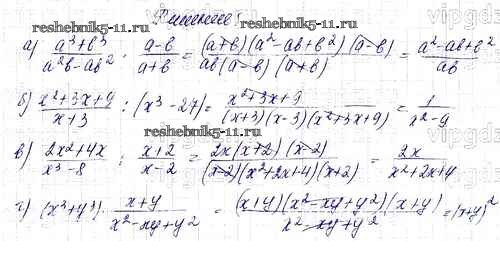 Решение
reshebnik5-11.ru
а) (a³+b³)/(a²b-ab²) : (a-b)/(a+b) = (a+b)(a²-ab+b²)(a-b)/(ab(a-b)(a+b)) = (a²-ab+b²)/(ab)
б) (x²+3x+9)/(x+3) : (x³-27) = (x²+3x+9)/((x+3)(x-3)(x²+3x+9)) = 1/(x²-9)
reshebnik5-11.ru
в) (2x²+4x)/(x³-8) : (x+2)/(x-2) = 2x(x+2)(x-2)/((x-2)(x²+2x+4)(x+2)) = 2x/(x²+2x+4)
г) (x³+y³) · (x+y)/(x²-xy+y²) = (x+y)(x²-xy+y²)(x+y)/(x²-xy+y²) = (x+y)²
reshebnik5-11.ru